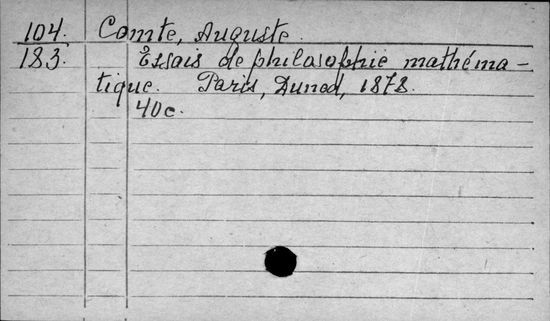 104. Comte, Auguste.
183. Essais de philosophie mathéma-
tique. Paris, Dunod, 1878.
40c.